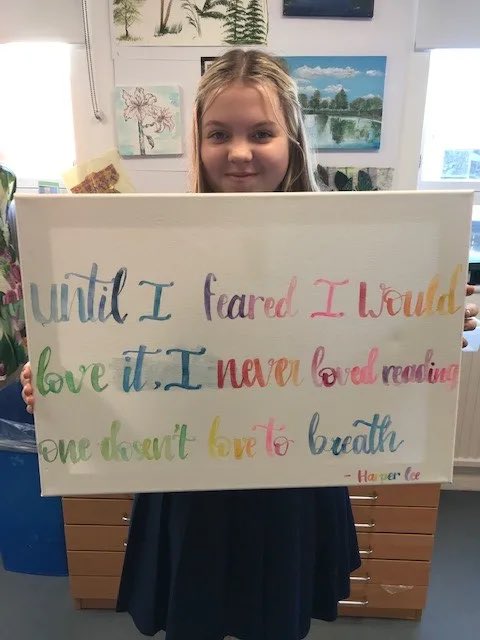 until I feared I would
love it, I never loved reading
one dosen't love to breath
- Harper Lee